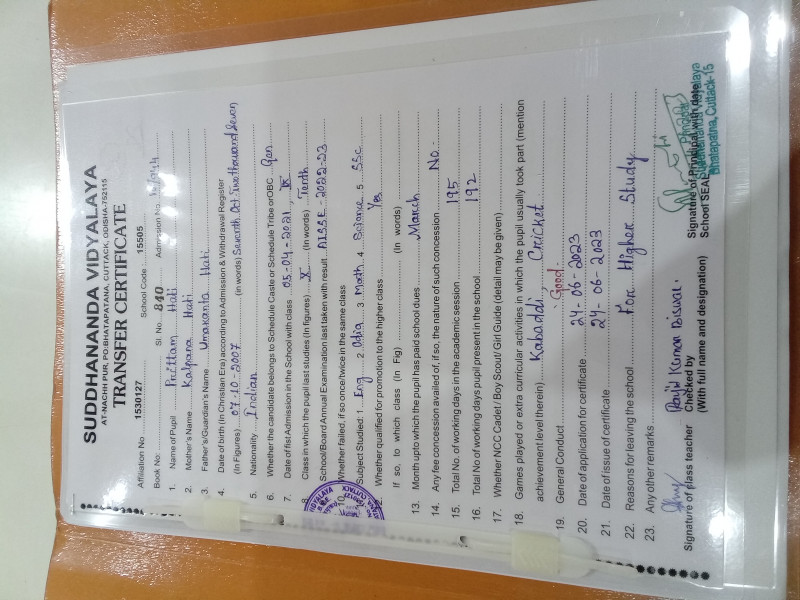 SUDDHANANDA VIDYALAYA
AT-NACHH PUR, PO-BHATAPATANA, CUTTACK, ODISHA-752115
TRANSFER CERTIFICATE
Affiliation No 1530127 School Code 15505
Book No: Sl. No 840 Admission No.
1. Name of Pupil Prittam Hati
2. Mother's Name Kalpana Hati
3. Father's/Guardian's Name Umakanta Hati
4. Date of birth (in Christian Era) according to Admission & Withdrawal Register
(In Figures) 07-10-2007 (in words) Seventh Oct. Two thousand seven
5. Nationality Indian
6. Whether the candidate belongs to Schedule Caste or Schedule Tribe or OBC Gen
7. Date of fist Admission in the School with class 05-04-2021, IX
8. Class in which the pupil last studies (In figures) X (In words) Tenth
School/Board Annual Examination last taken with result AISSE-2022-23
Whether failed, if so once/twice in the same class
Subject Studied: 1 Eng 2 Odia 3 Math 4 Science 5 SSc
Whether qualified for promotion to the higher class Yes
If so, to which class (In Fig) (In words)
13. Month upto which the pupil has paid school dues March
14. Any fee concession availed of, if so, the nature of such concession No
15. Total No. of working days in the academic session 195
16. Total No of working days pupil present in the school 192
17. Whether NCC Cadet / Boy Scout/ Girl Guide (detail may be given)
18. Games played or extra curricular activities in which the pupil usually took part (mention
achievement level therein) Kabaddi, Cricket
19. General Conduct Good
20. Date of application for certificate 24-06-2023
21. Date of issue of certificate 24-06-2023
22. Reasons for leaving the school For Higher Study
23. Any other remarks
Signature of class teacher
Checked by
(With full name and designation)
Signature of Principal with date
School SEAL
Principal
Suddhananda Vidyalaya
Bhatapatna, Cuttack-15